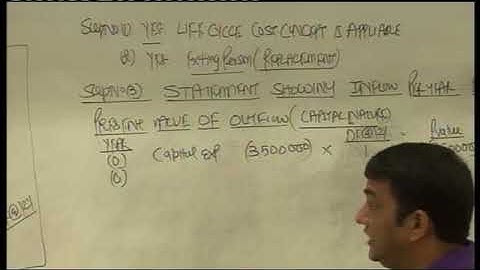 Step NO(1) YES LIFE CYCLE COST CONCEPT IS APPLIABLE
(2) YES Existing Person (REPLACEMENT)
Step NO(3) STATEMENT SHOWING INFLOW PER YEAR
PRESENT VALUE OF OUTFLOW (CAPITAL NATURE)
YEAR P.Value
(0) Capital Exp (3500000) × 1
(0)